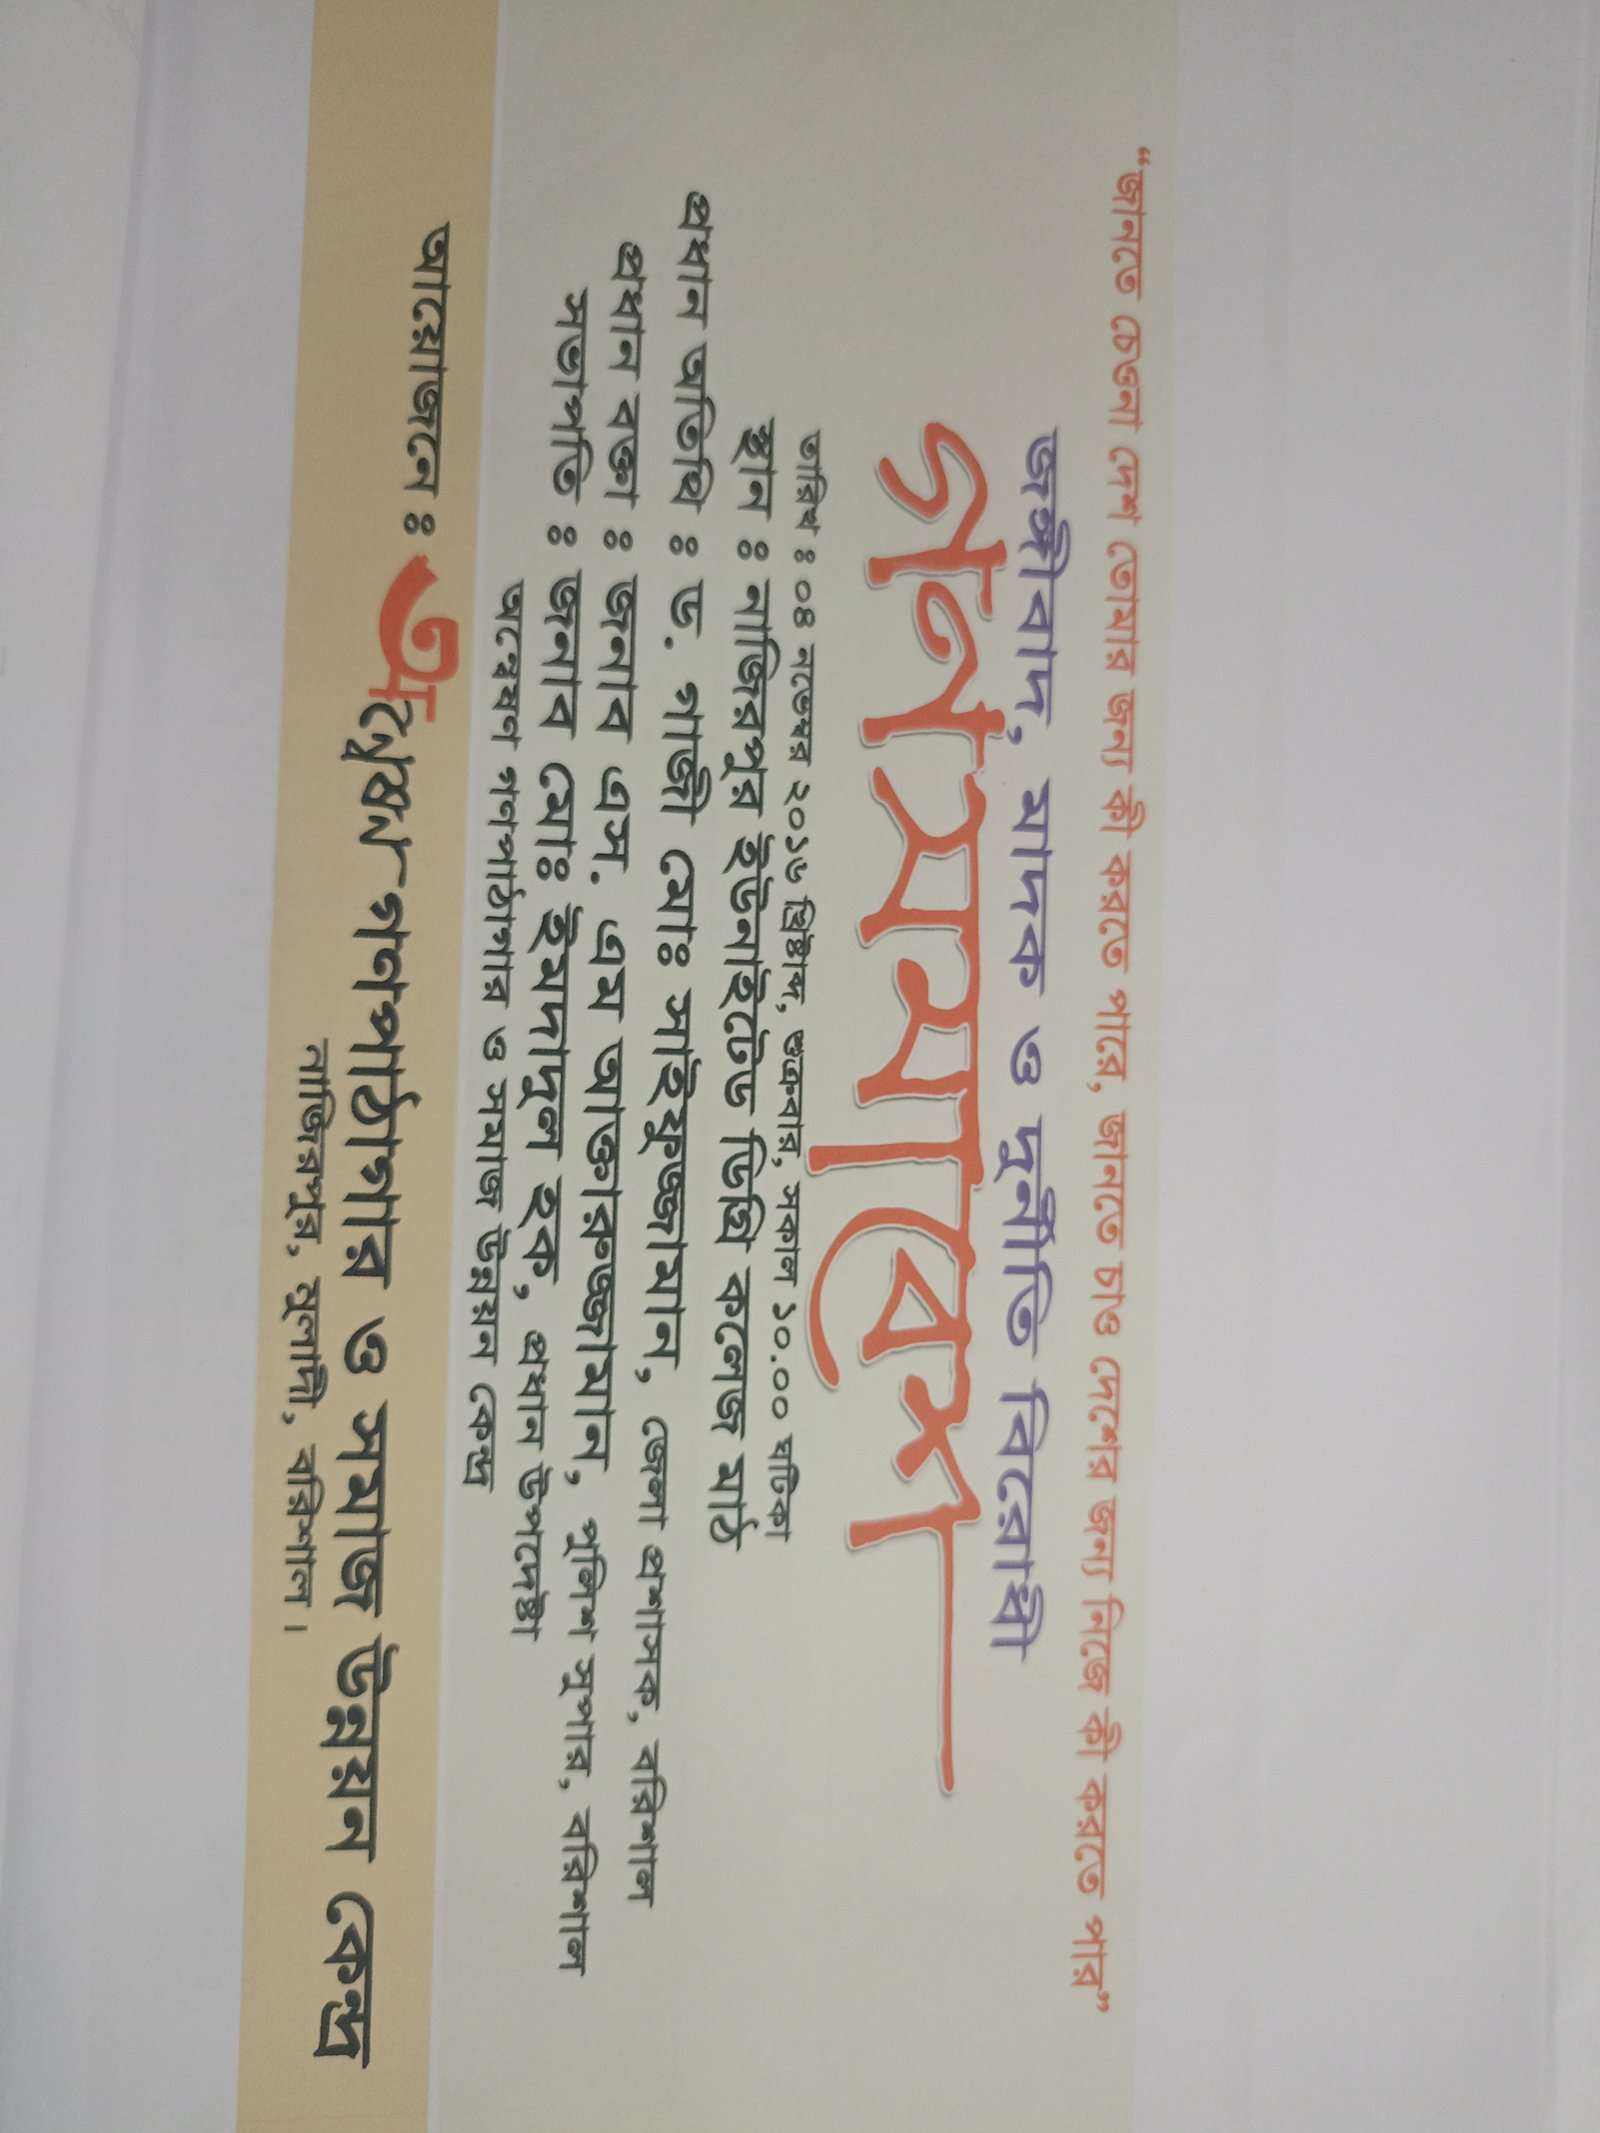 “জানতে চেওনা দেশ তোমার জন্য কী করতে পারে, জানতে চাও দেশের জন্য নিজে কী করতে পার”
জঙ্গীবাদ, মাদক ও দুর্নীতি বিরোধী
গনসমাবেশ
তারিখ ঃ ০৪ নভেম্বর ২০১৬ খ্রিষ্টাব্দ, শুক্রবার, সকাল ১০.০০ ঘটিকা
স্থান ঃ নাজিরপুর ইউনাইটেড ডিগ্রি কলেজ মাঠ
প্রধান অতিথি ঃ ড. গাজী মোঃ সাইফুজ্জামান, জেলা প্রশাসক, বরিশাল
প্রধান বক্তা ঃ জনাব এস. এম আক্তারুজ্জামান, পুলিশ সুপার, বরিশাল
সভাপতি ঃ জনাব মোঃ ইমদাদুল হক, প্রধান উপদেষ্টা
অন্বেষণ গণপাঠাগার ও সমাজ উন্নয়ন কেন্দ্র
আয়োজনে ঃ অন্বেষণ গণপাঠাগার ও সমাজ উন্নয়ন কেন্দ্র
নাজিরপুর, মুলাদী, বরিশাল।